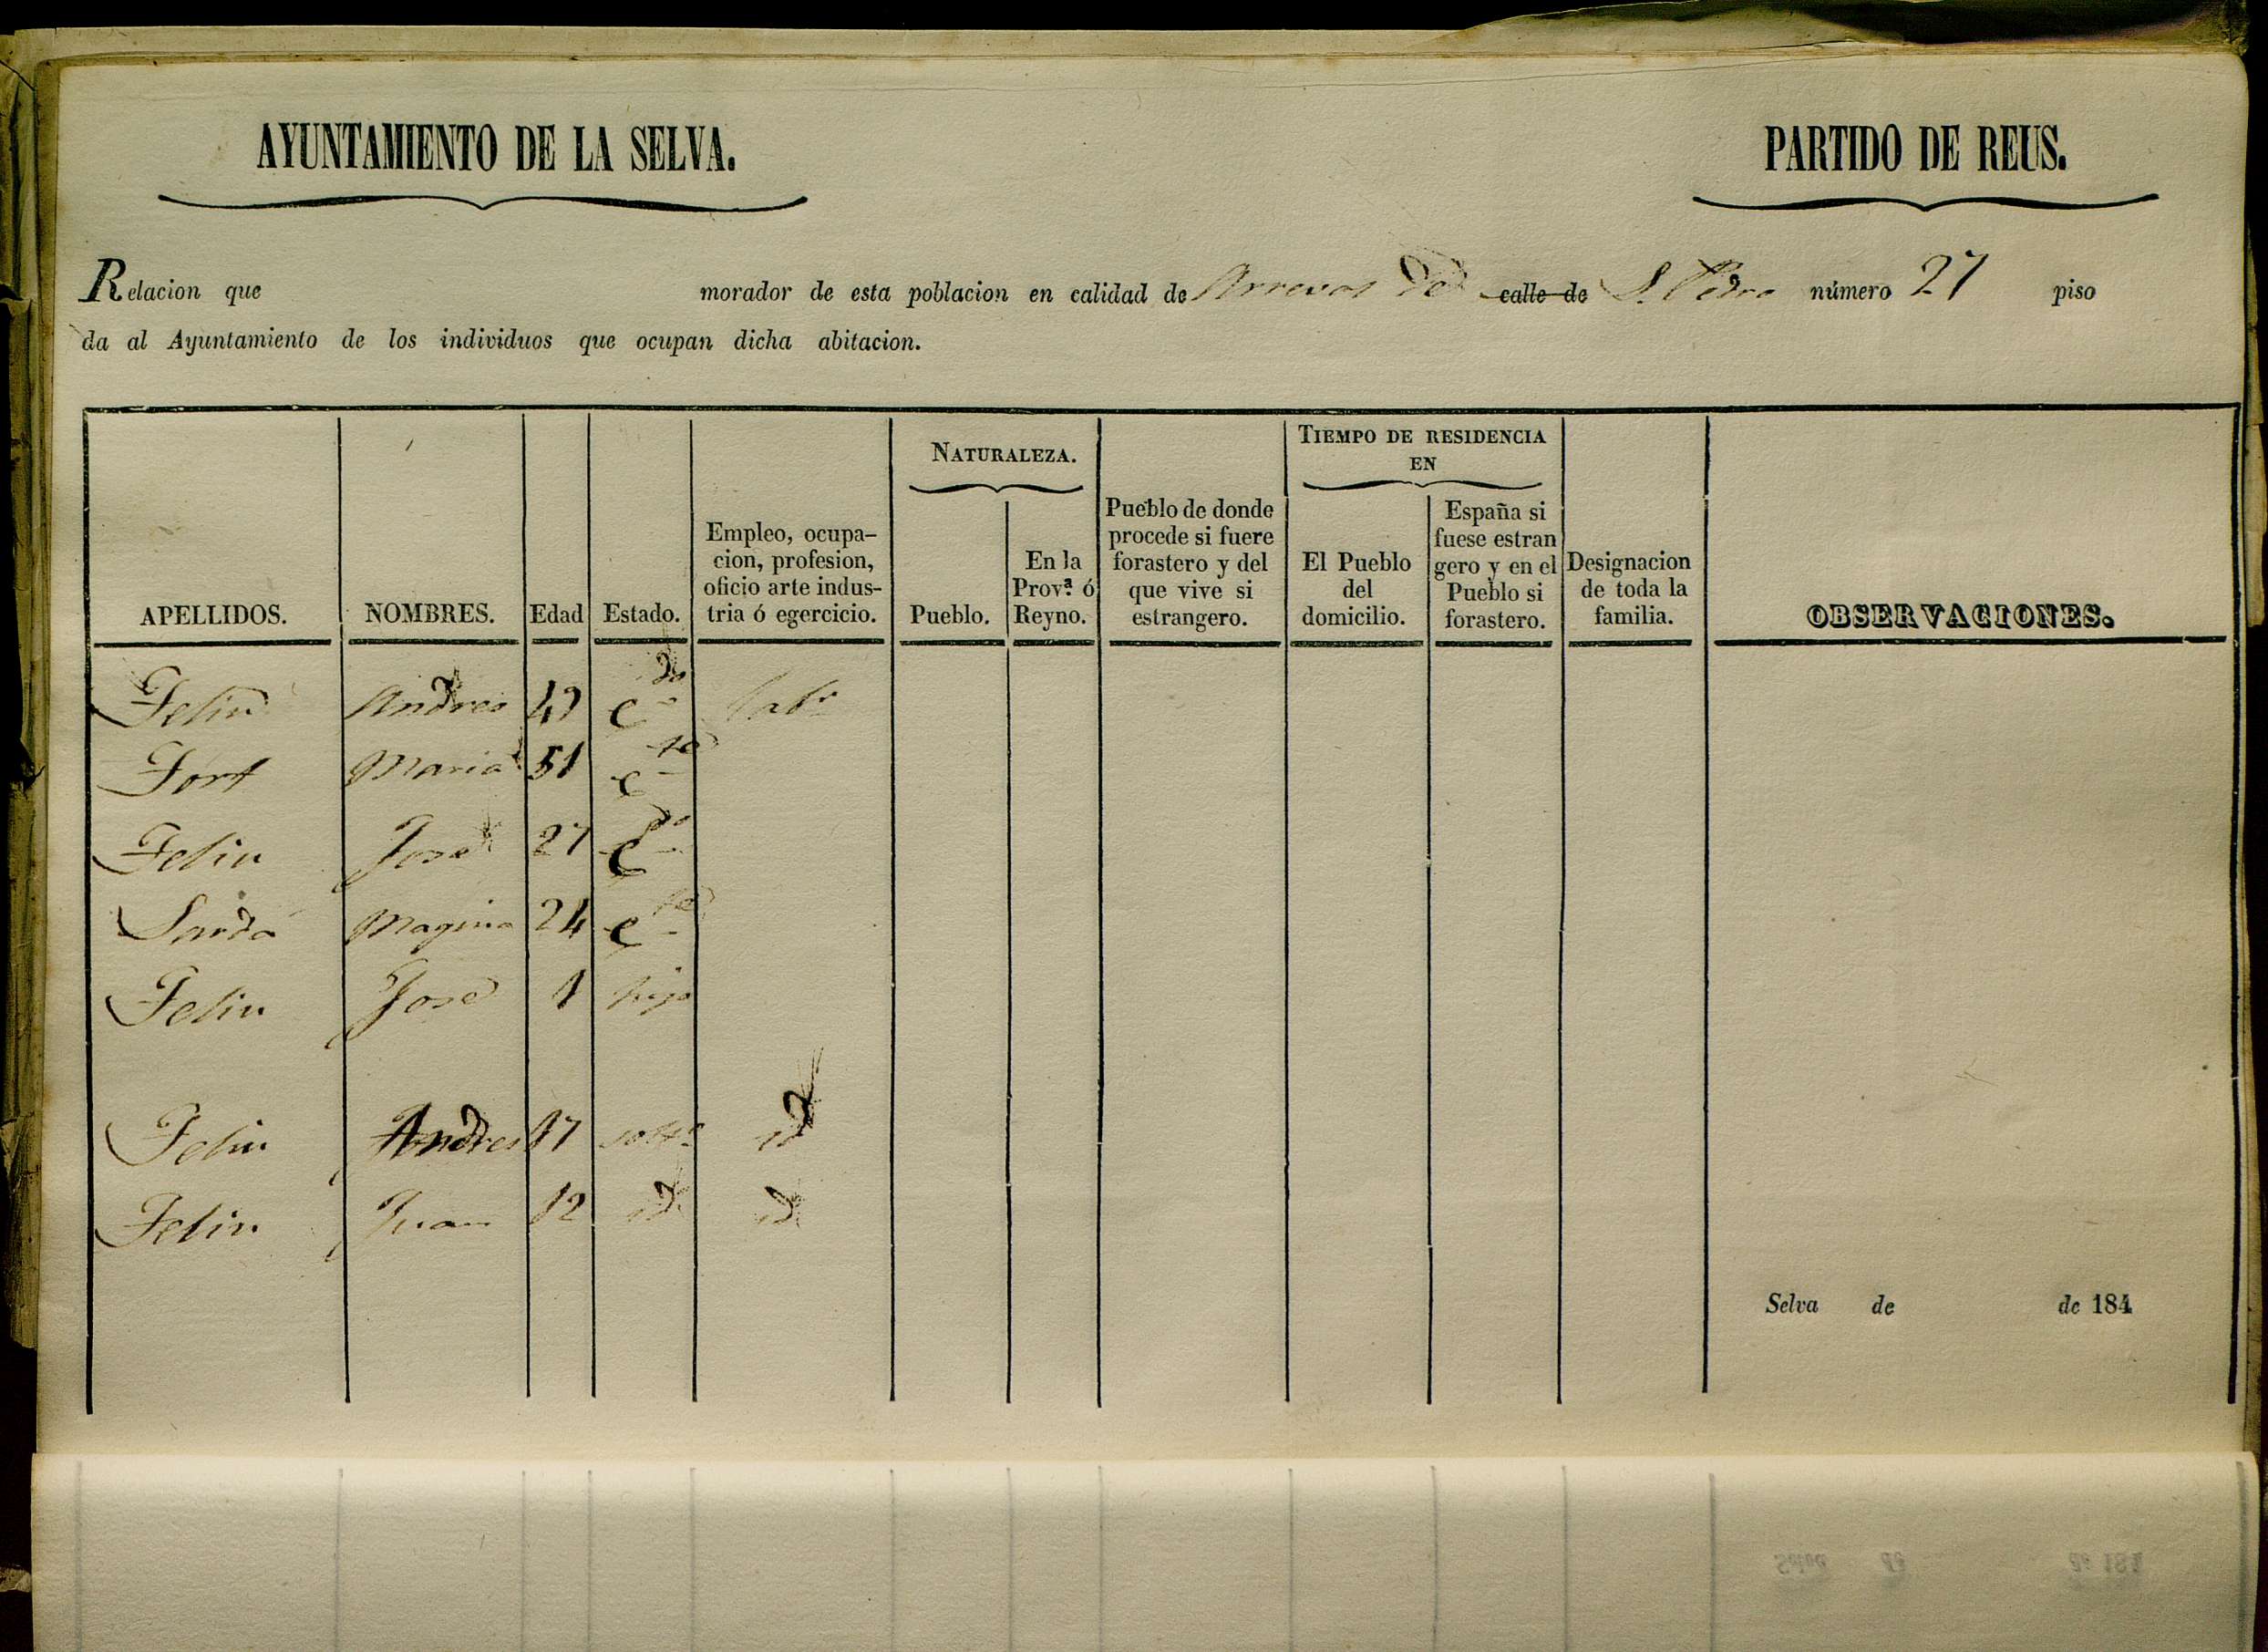 AYUNTAMIENTO DE LA SELVA. PARTIDO DE REUS.
Relacion que morador de esta poblacion en calidad de Arrenal de calle de S. Pedro número 27 piso
da al Ayuntamiento de los individuos que ocupan dicha abitacion.
NATURALEZA. TIEMPO DE RESIDENCIA EN
APELLIDOS. NOMBRES. Edad Estado. Empleo, ocupa-cion, profesion, oficio arte indus-tria ó egercicio. Pueblo. En la Prov.ª ó Reyno. Pueblo de donde procede si fuere forastero y del que vive si estrangero. El Pueblo del domicilio. España si fuese estran gero y en el Pueblo si forastero. Designacion de toda la familia. OBSERVACIONES.
Feliu Andres 49 c.do lab.r
Fort Maria 51 c.da
Feliu José 27 c.do
Sardá Magina 24 c.da
Feliu José 1 hijo
Feliu Andres 17 solt.o id
Feliu Juan 12 id. id.
Selva de de 184